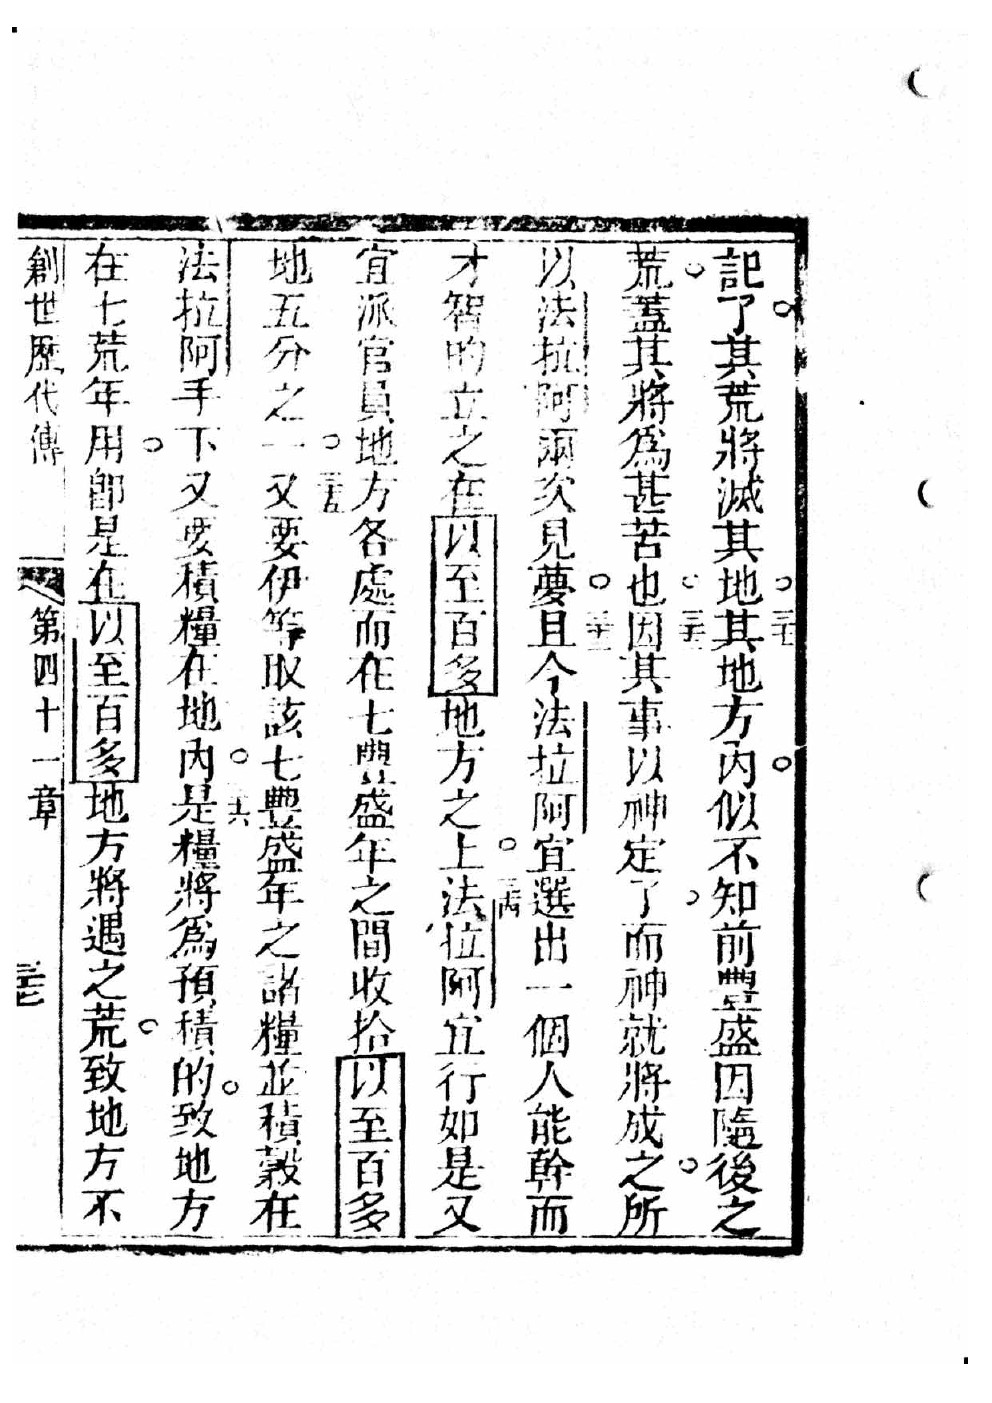 記了其荒將滅其地三十一其地方內似不知前豐盛因隨後之
荒蓋其將爲甚苦也三十二因其事以神定了而神就將成之所
以法拉阿兩次見夢三十三且今法拉阿宜選出一個人能幹而
才智的立之在以至百多地方之上三十四法拉阿宜行如是又
宜派官員地方各處而在七豐盛年之間收拾以至百多
地五分之一三十五又要伊等取該七豐盛年之諸糧並積穀在
法拉阿手下又要積糧在地內三十六是糧將爲預積的致地方
在七荒年用卽是在以至百多地方將遇之荒致地方不
創世歷代傳 第四十一章